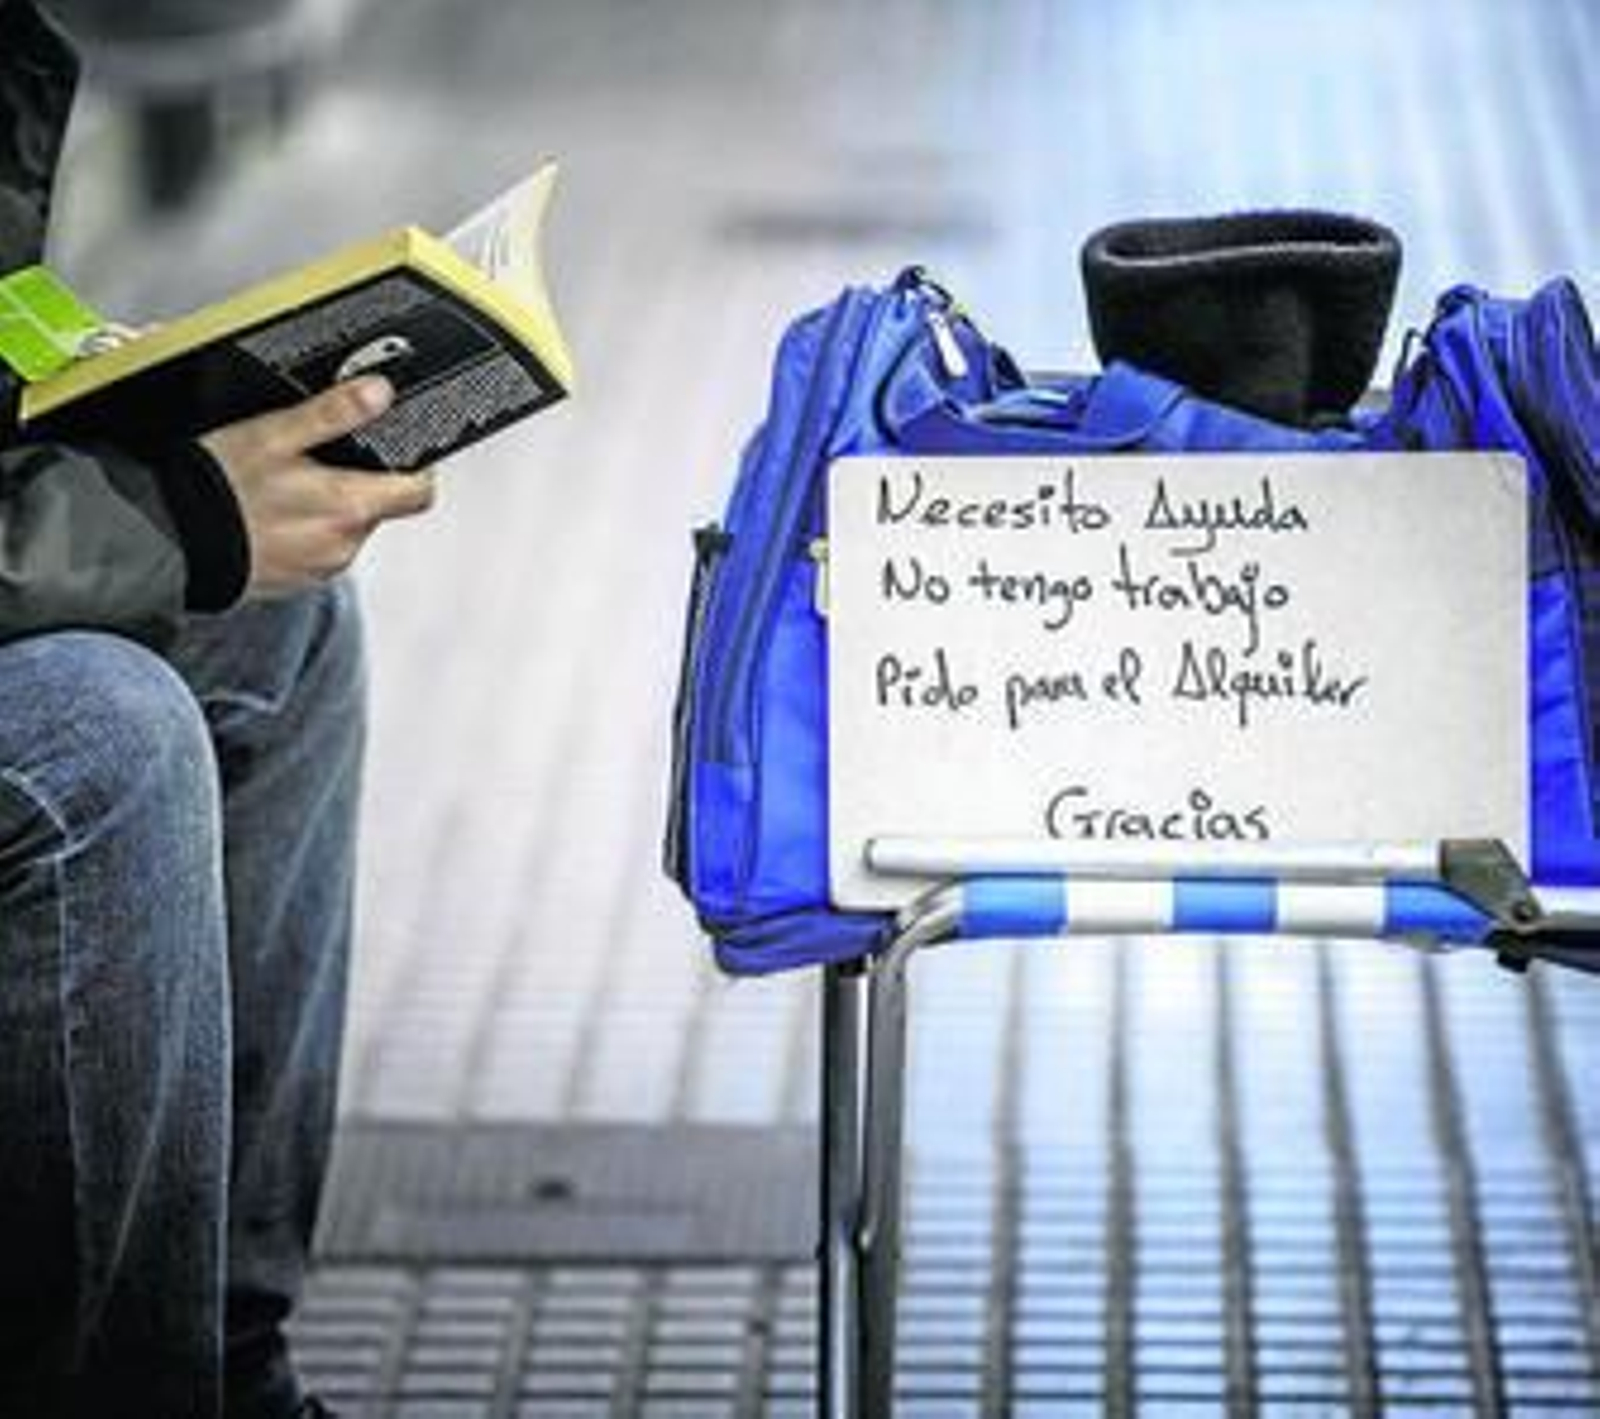 Necesito Ayuda
No tengo trabajo
Pido para el Alquiler
Gracias